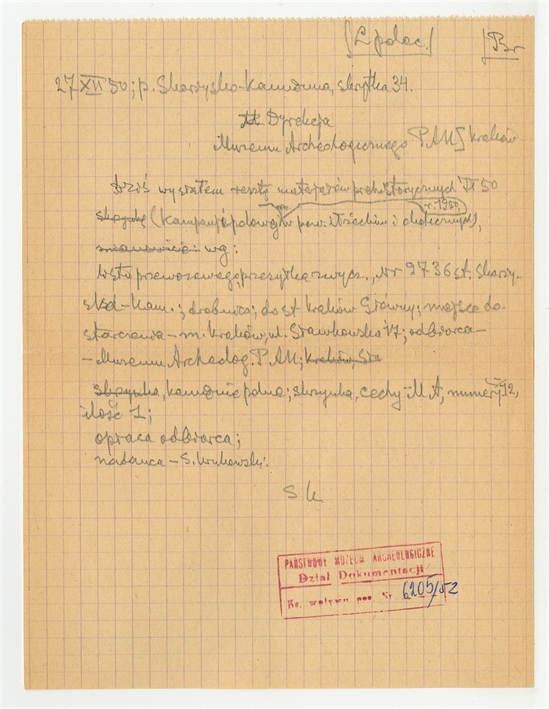 [Z polec.]
[Br
27 XII 50; p. Skarżysko-Kamienna, skrytka 34.
Dyrekcja
Muzeum Archeologicznego P.A.U] Kraków
Dziś wysłałem resztę materjałów prehistorycznych 50
r. 1950
skrzynkę (Kampanja polowa w pow. iłżeckim i choteckim),
mianowicie: wg:
listu przewozowego, przesyłka zwycz., Nr 9736 st. Skarży-
sko-Kam.; drobnica; do st. Kraków Główny; miejsce do-
starczenia – m. Kraków, ul. Sławkowska 17; odbiorca –
– Muzeum Archeolog. P.AU; Kraków, Sła
skrzynka, kamienie polne; skrzynka, cechy – M A, numery 92,
ilość 1;
opłaca odbiorca;
nadawca – S. Krukowski.
S K
PAŃSTWOWE MUZEUM ARCHEOLOGICZNE
Dział Dokumentacji
Ks. wpływu poz. Nr 6205/52